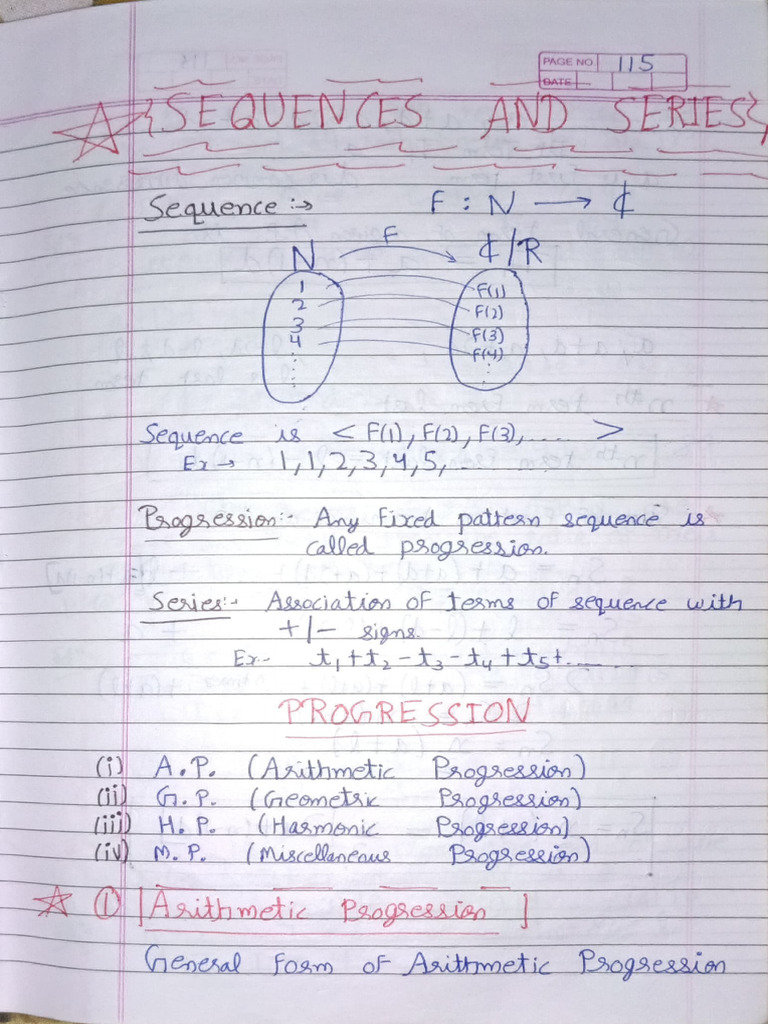 PAGE NO 115
DATE
SEQUENCES AND SERIES
Sequence :→ F : N → ₵
N F ₵/R
1 F(1)
2 F(2)
3 F(3)
4 F(4)
Sequence is < F(1), F(2), F(3),.... >
Ex → 1,1,2,3,4,5,
Progression:- Any fixed pattern sequence is
called progression.
Series:- Association of terms of sequence with
+/- signs.
Ex- t₁+t₂-t₃-t₄+t₅+......
PROGRESSION
(i) A.P. (Arithmetic Progression)
(ii) G.P. (Geometric Progression)
(iii) H.P. (Harmonic Progression)
(iv) M.P. (Miscellaneous Progression)
① [Arithmetic Progression]
General Form of Arithmetic Progression